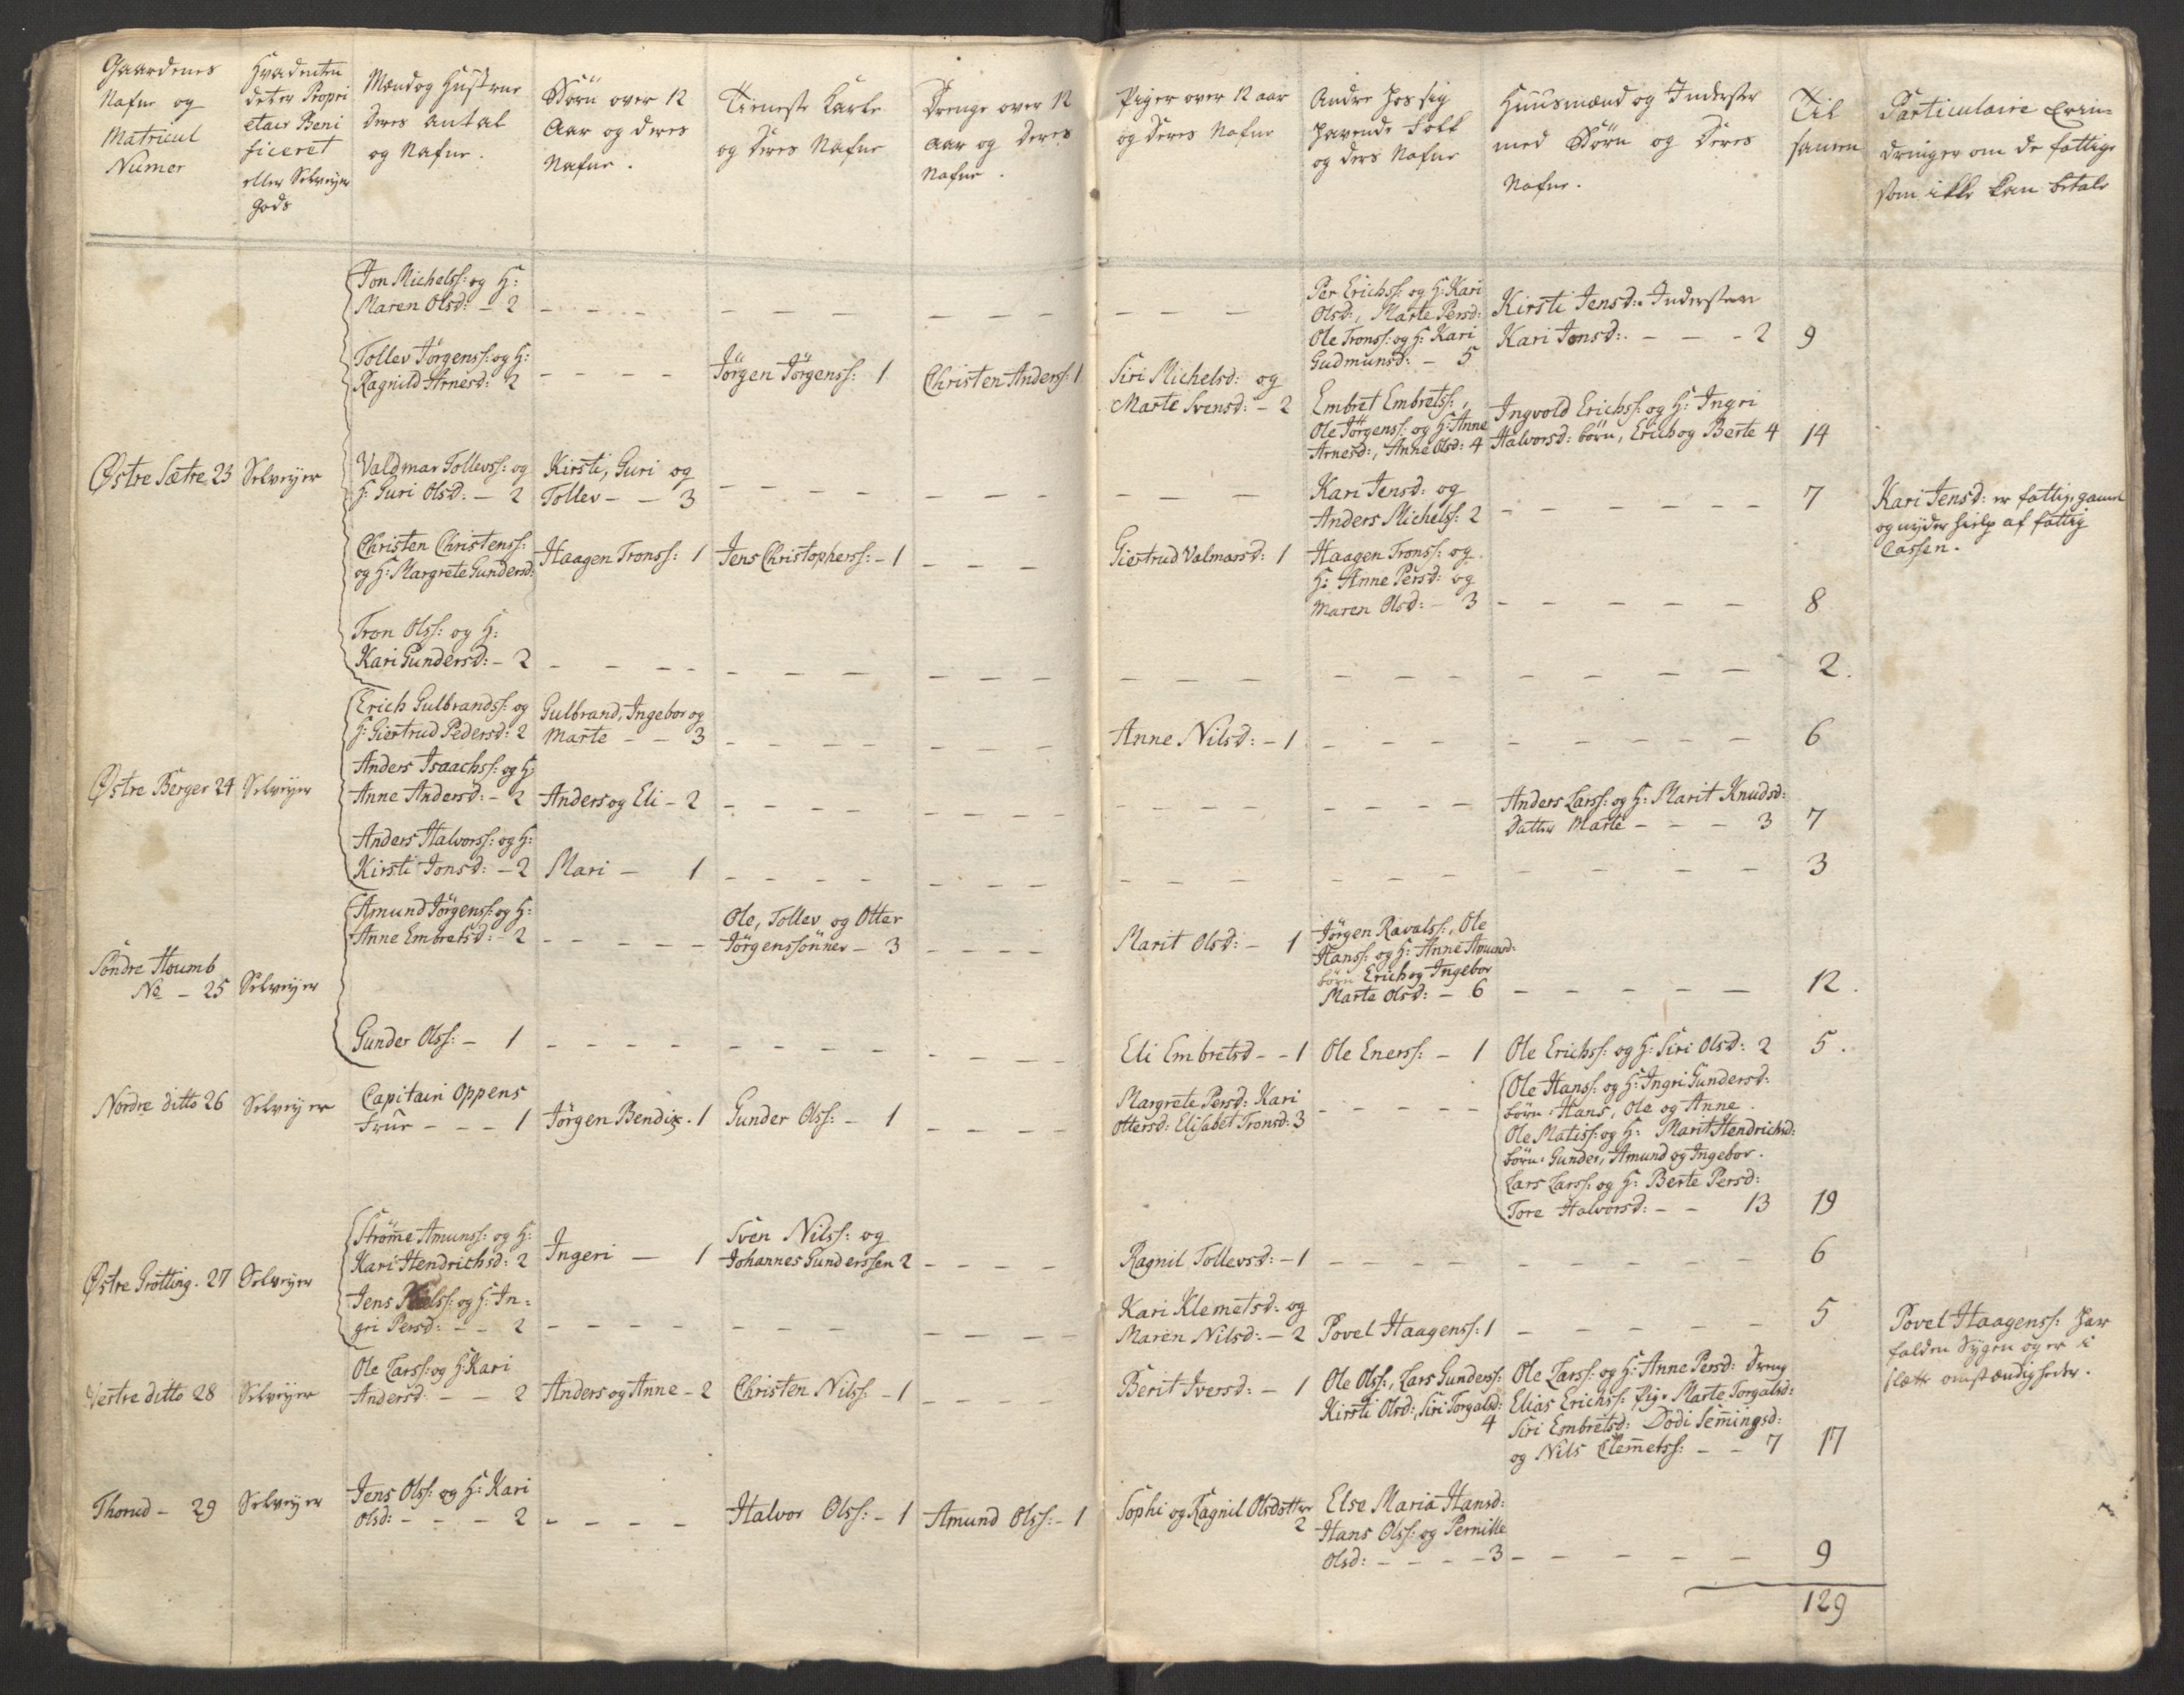 Gaardenes Nafne og Matricul Numer
Hvadenten det er Propri etair Beni ficeret eller Selveÿer gods
Mænd og Hustruer deres antal og Nafne.
Børn over 12 Aar og deres Nafne.
Tieneste Karle og deres Nafne
Drenge over 12 aar og deres Nafne.
Piger over 12 aar og deres Nafne
Andre hos sig havende folk og ders Nafne
Huusmænd og Inderster med Børn og deres Nafne.
Til samen
Particulaire Erin= dringer om de fattige som ikke kan betale
Jon Michelss: og H:
Maren Olsd: - 2 - - - - - - - - - - -
Per Erichss: og H: Kari
Olsd:, Marte Persd:
Ole Tronss: og H: Kari
Gudmunsd: - 5
Kirsti Jensd: Inderster
Kari Jonsd: - - - 2 9
Tollev Jörgenss: og H:
Ragnild Arnesd: 2 - - - - Jörgen Jörgenss: 1 Christen Anderss: 1
Siri Michelsd: og
Marte Svensd: - 2
Embret Embretss:,
Ole Jörgenss: og H: Anne
Arnesd:, Anne Olsd: 4
Ingvold Erichss: og H: Ingri
Halvorsd: börn, Erich og Berte 4 14
Østre Sætre 23 Selveÿer
Valdmar Tollevss: og
H: Guri Olsd: - 2
Kirsti, Guri og
Tollev - - 3 - - - - - - - - - -
Kari Jensd: og
Anders Michelss: 2 - - - - - - 7
Kari Jensd: er fattig, gamel
og nÿder hielp af fattig
Cassen.
Christen Christenss:
og H: Margrete Gundersd:
Haagen Tronss: 1 Jens Christopherss: - 1 - - - Giertrud Valmarsd: 1
Haagen Tronss: og
H: Anne Persd: og
Maren Olsd: - 3 - - - - - 8
Tron Olss: og H:
Kari Gundersd: - 2 - - - - - - - - - - - - - - - - - - - - - 2.
Erich Gulbrandss: og
H: Giertrud Pedersd: 2
Gulbrand, Ingebor og
Marte - - 3 - - - - - - - Anne Nilsd: - 1 - - - - - - - - 6
Østre Berger 24 Selveÿer
Anders Isaachss: og H:
Anne Andersd: - 2 Anders og Eli - 2 - - - - - - - - - - - - - - - -
Anders Larss: og H: Marit Knudsd:
Datter Marte - - - 3 7
Anders Halvorss: og H:
Kirsti Jonsd: - 2 Mari - 1 - - - - - - - - - - - - - - - - - - 3
Søndre Houmb
No - 25 Selveÿer
Amund Jörgenss: og H:
Anne Embretsd: - 2 - - - - -
Ole, Tollev og Otter
Jörgenssönner - 3 - - - -
Marit Olsd: - 1
Jörgen Ravalss:, Ole
Hanss: og H: Anne Amund:
börn Erich og Ingebor
Marte Olsd: - 6 - - - - - 12.
Gunder Olss: - 1 - - - - - - - - - - - - - Eli Embretsd - - 1 Ole Enerss: - 1 Ole Erichss: og H: Siri Olsd: 2 5.
Nordre ditto 26 Selveÿer
Capitain Oppens
Frue - - - 1 Jörgen Bendix. 1 Gunder Olss: - 1 - - - -
Margrete Persd: Kari
Ottersd: Elisabet Tronsd: 3 - - - - -
Ole Hanss: og H: Ingri Gundersd:
börn: Hans, Ole og Anne.
Ole Matiss: og H: Marit Hendrichsd:
börn: Gunder, Amund og Ingebor.
Lars Larss: og H: Berte Persd:
Tore Halvorsd: - - 13 19
Østre Grötting. 27 Selveÿer
Strömme Amunss: og H:
Kari Hendrichsd: 2 Ingeri - 1
Sven Nilss: og
Johannes Gunderssen 2 - - - - Ragnil Tollevsd: - 1 - - - - - - - - - 6
Jens Nielss: og H: In=
gri Persd: - - 2 - - - - - - - - - - - -
Kari Klemetsd: og
Maren Nilsd: - 2 Povel Haagenss: 1 - - - - - 5
Povel Haagenss: har
falden Sÿgen og er i
slette omstændigheder.
Vestre ditto 28 Selveÿer
Ole Larss: og H: Kari
Andersd: - - 2 Anders og Anne - 2 Christen Nilss: - 1 - - - - Berit Iversd: - 1
Ole Olss:, Lars Gunderss:
Kirsti Olsd:, Siri Torgalsd:
4
Ole Larss: og H: Anne Persd: Dreng
Elias Erichss: Pige Marte Torgalsd:
Siri Embretsd: Dodi Semingsd:
og Nils Clemetss: - - 7 17
Thorud - 29 Selveÿer
Jens Olss: og H: Kari
Olsd: - - - 2 - - - - Halvor Olss: - 1 Amund Olss: - 1
Sophi og Ragnil Olsdøtter
2
Else Maria Hansd:
Hans Olss: og Pernille
Olsd: - - - - 3 - - - - - 9
129